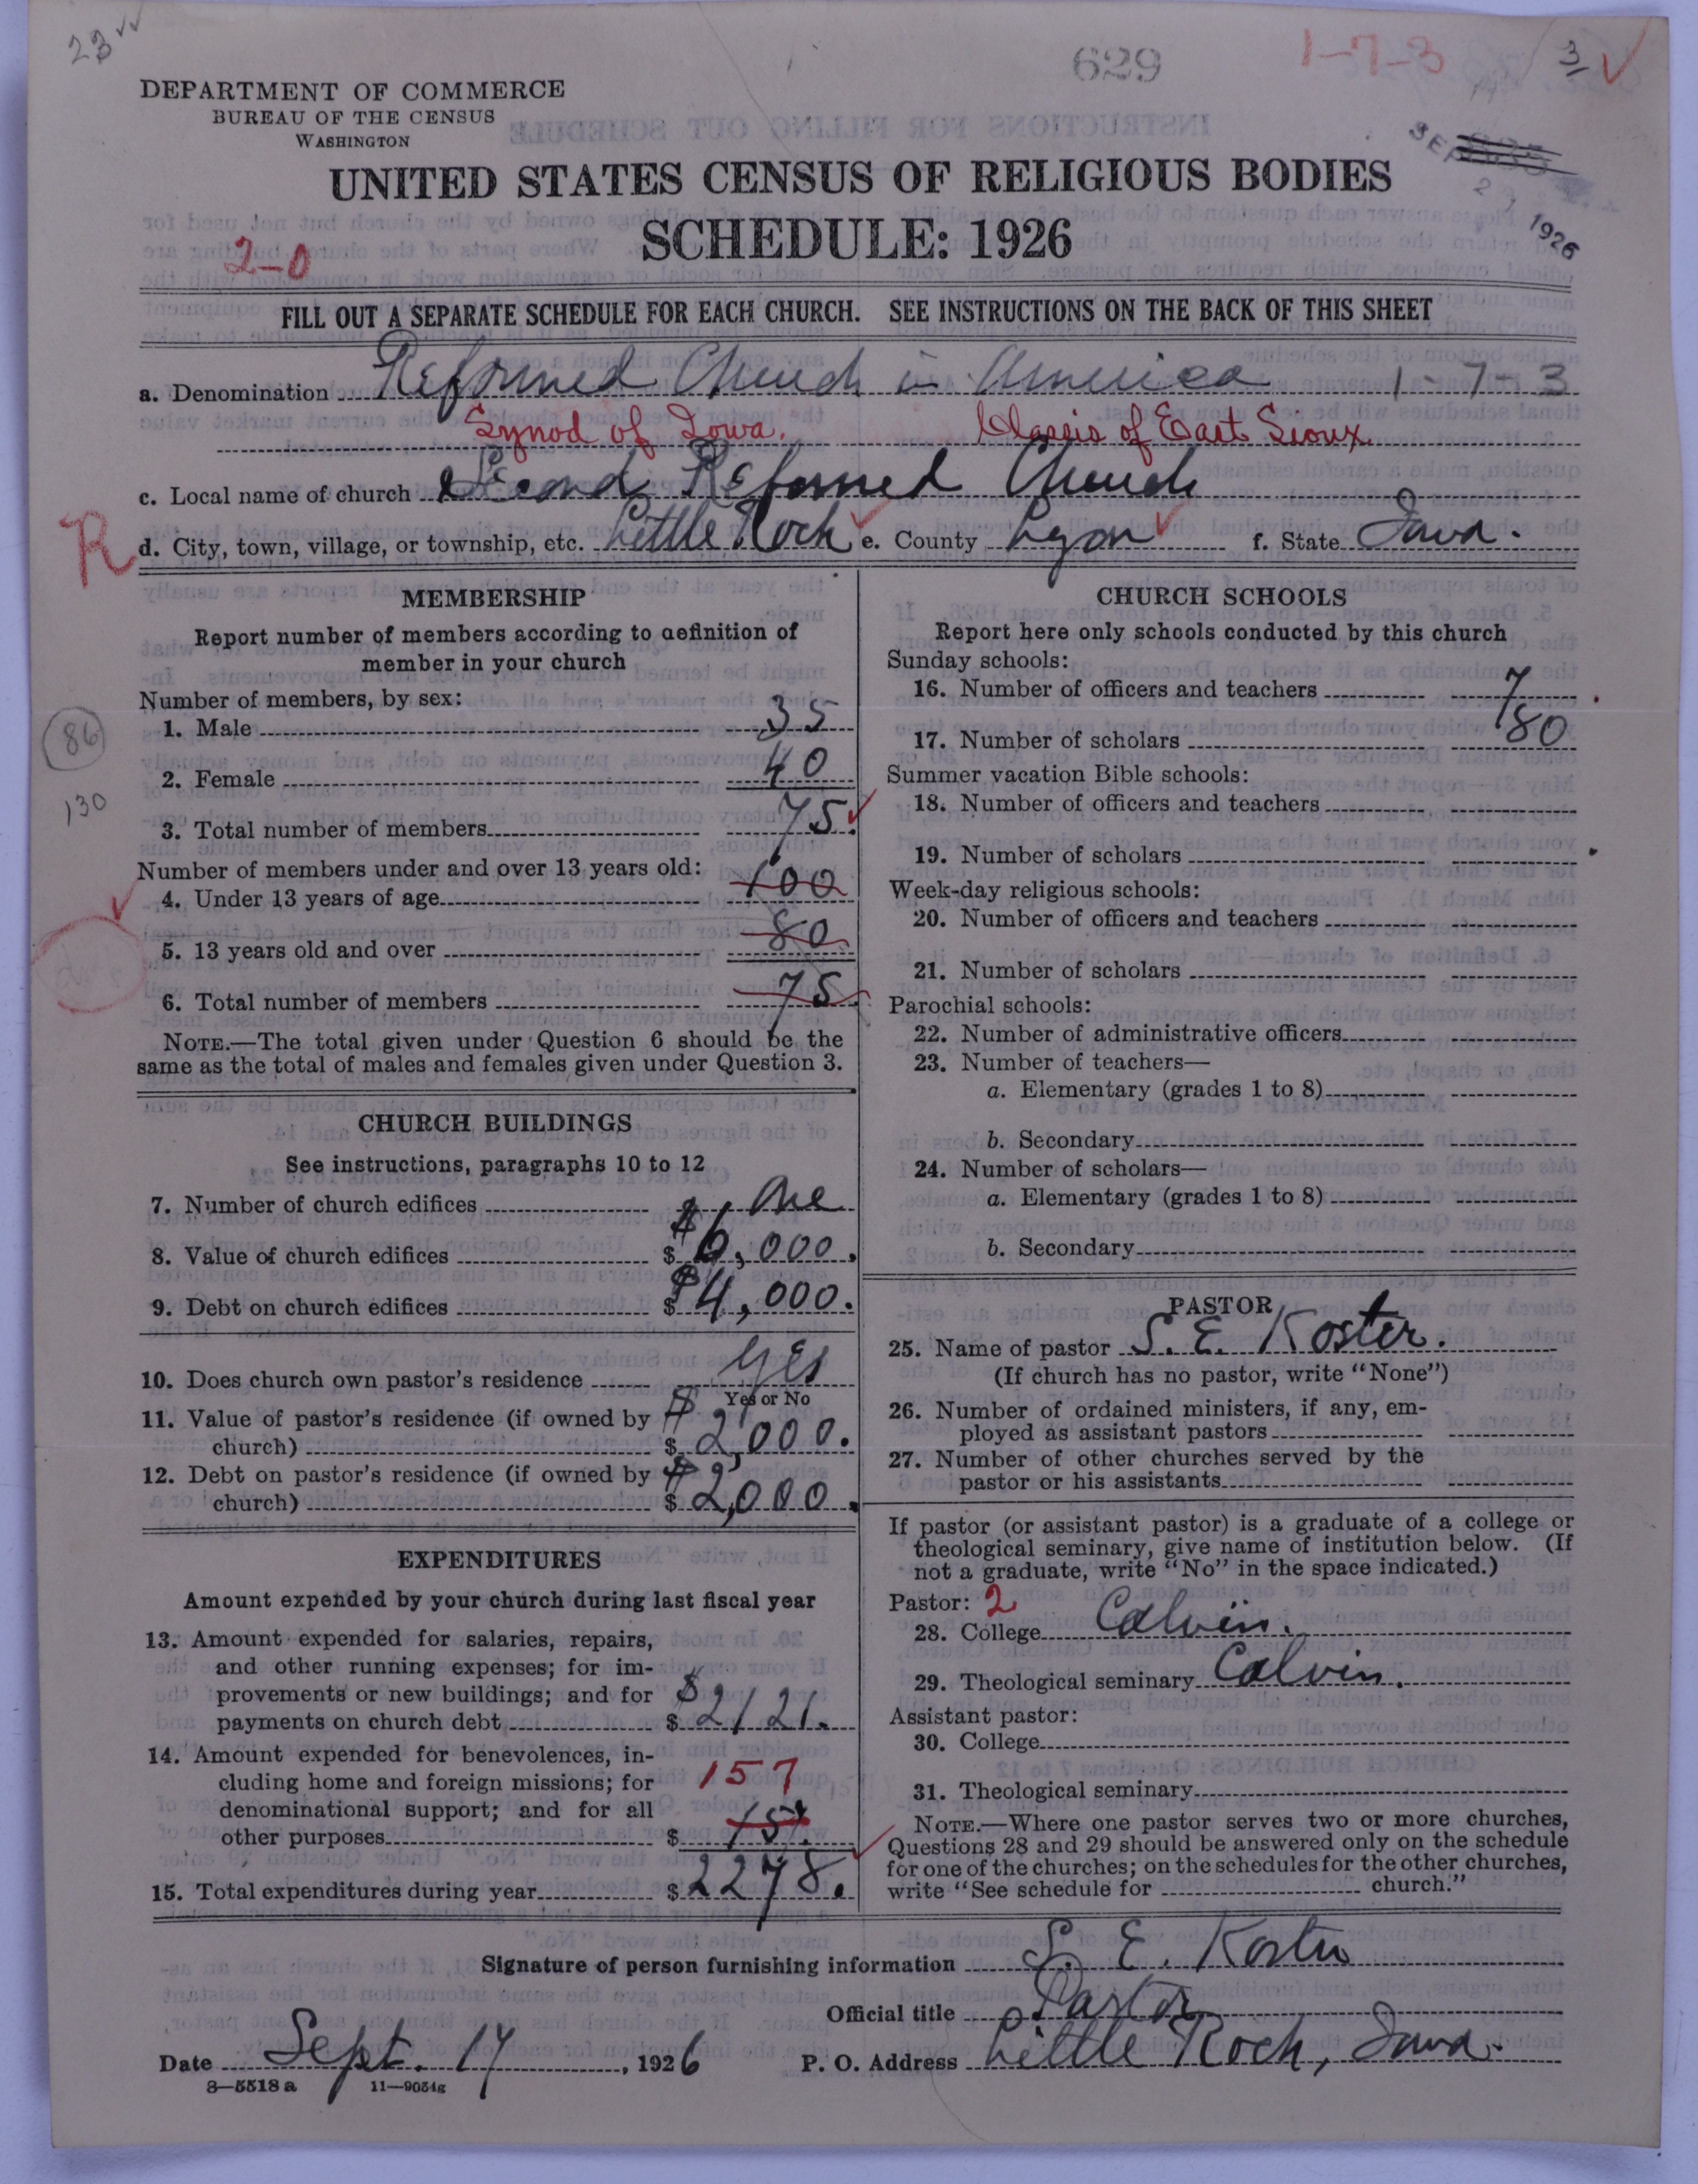 23
629
1-7-3
3
DEPARTMENT OF COMMERCE
BUREAU OF THE CENSUS
WASHINGTON
UNITED STATES CENSUS OF RELIGIOUS BODIES
SCHEDULE: 1926
1926
2-0
FILL OUT A SEPARATE SCHEDULE FOR EACH CHURCH. SEE INSTRUCTIONS ON THE BACK OF THIS SHEET
a. Denomination Reformed Church in America 1-7-3
Synod of Iowa. Classis of East Sioux
c. Local name of church Second Reformed Church
R
d. City, town, village, or township, etc. Little Rock e. County Lyon f. State Iowa.
MEMBERSHIP
Report number of members according to definition of
member in your church
Number of members, by sex:
1. Male 35
86
2. Female 40
130
3. Total number of members 75.
Number of members under and over 13 years old:
4. Under 13 years of age 100
5. 13 years old and over 80
6. Total number of members 75
NOTE.—The total given under Question 6 should be the
same as the total of males and females given under Question 3.
CHURCH BUILDINGS
See instructions, paragraphs 10 to 12
7. Number of church edifices One
8. Value of church edifices $ $6,000.
9. Debt on church edifices $ $4,000.
10. Does church own pastor's residence Yes
Yes or No
11. Value of pastor's residence (if owned by
church) $ $2,000.
12. Debt on pastor's residence (if owned by
church) $ $2,000.
EXPENDITURES
Amount expended by your church during last fiscal year
13. Amount expended for salaries, repairs,
and other running expenses; for im-
provements or new buildings; and for
payments on church debt $ $2121.
14. Amount expended for benevolences, in-
cluding home and foreign missions; for
157
denominational support; and for all
other purposes $
15. Total expenditures during year $ 2278.
CHURCH SCHOOLS
Report here only schools conducted by this church
Sunday schools:
16. Number of officers and teachers 7
17. Number of scholars 80
Summer vacation Bible schools:
18. Number of officers and teachers
19. Number of scholars
Week-day religious schools:
20. Number of officers and teachers
21. Number of scholars
Parochial schools:
22. Number of administrative officers
23. Number of teachers—
a. Elementary (grades 1 to 8)
b. Secondary
24. Number of scholars—
a. Elementary (grades 1 to 8)
b. Secondary
PASTOR
25. Name of pastor S. E. Koster.
(If church has no pastor, write "None")
26. Number of ordained ministers, if any, em-
ployed as assistant pastors
27. Number of other churches served by the
pastor or his assistants
If pastor (or assistant pastor) is a graduate of a college or
theological seminary, give name of institution below. (If
not a graduate, write "No" in the space indicated.)
Pastor: 2
28. College Calvin.
29. Theological seminary Calvin.
Assistant pastor:
30. College
31. Theological seminary
NOTE.—Where one pastor serves two or more churches,
Questions 28 and 29 should be answered only on the schedule
for one of the churches; on the schedules for the other churches,
write "See schedule for church."
Signature of person furnishing information S. E. Koster
Official title Pastor
Date Sept. 14, 1926 P. O. Address Little Rock, Iowa.
8—5518 a 11—9054g